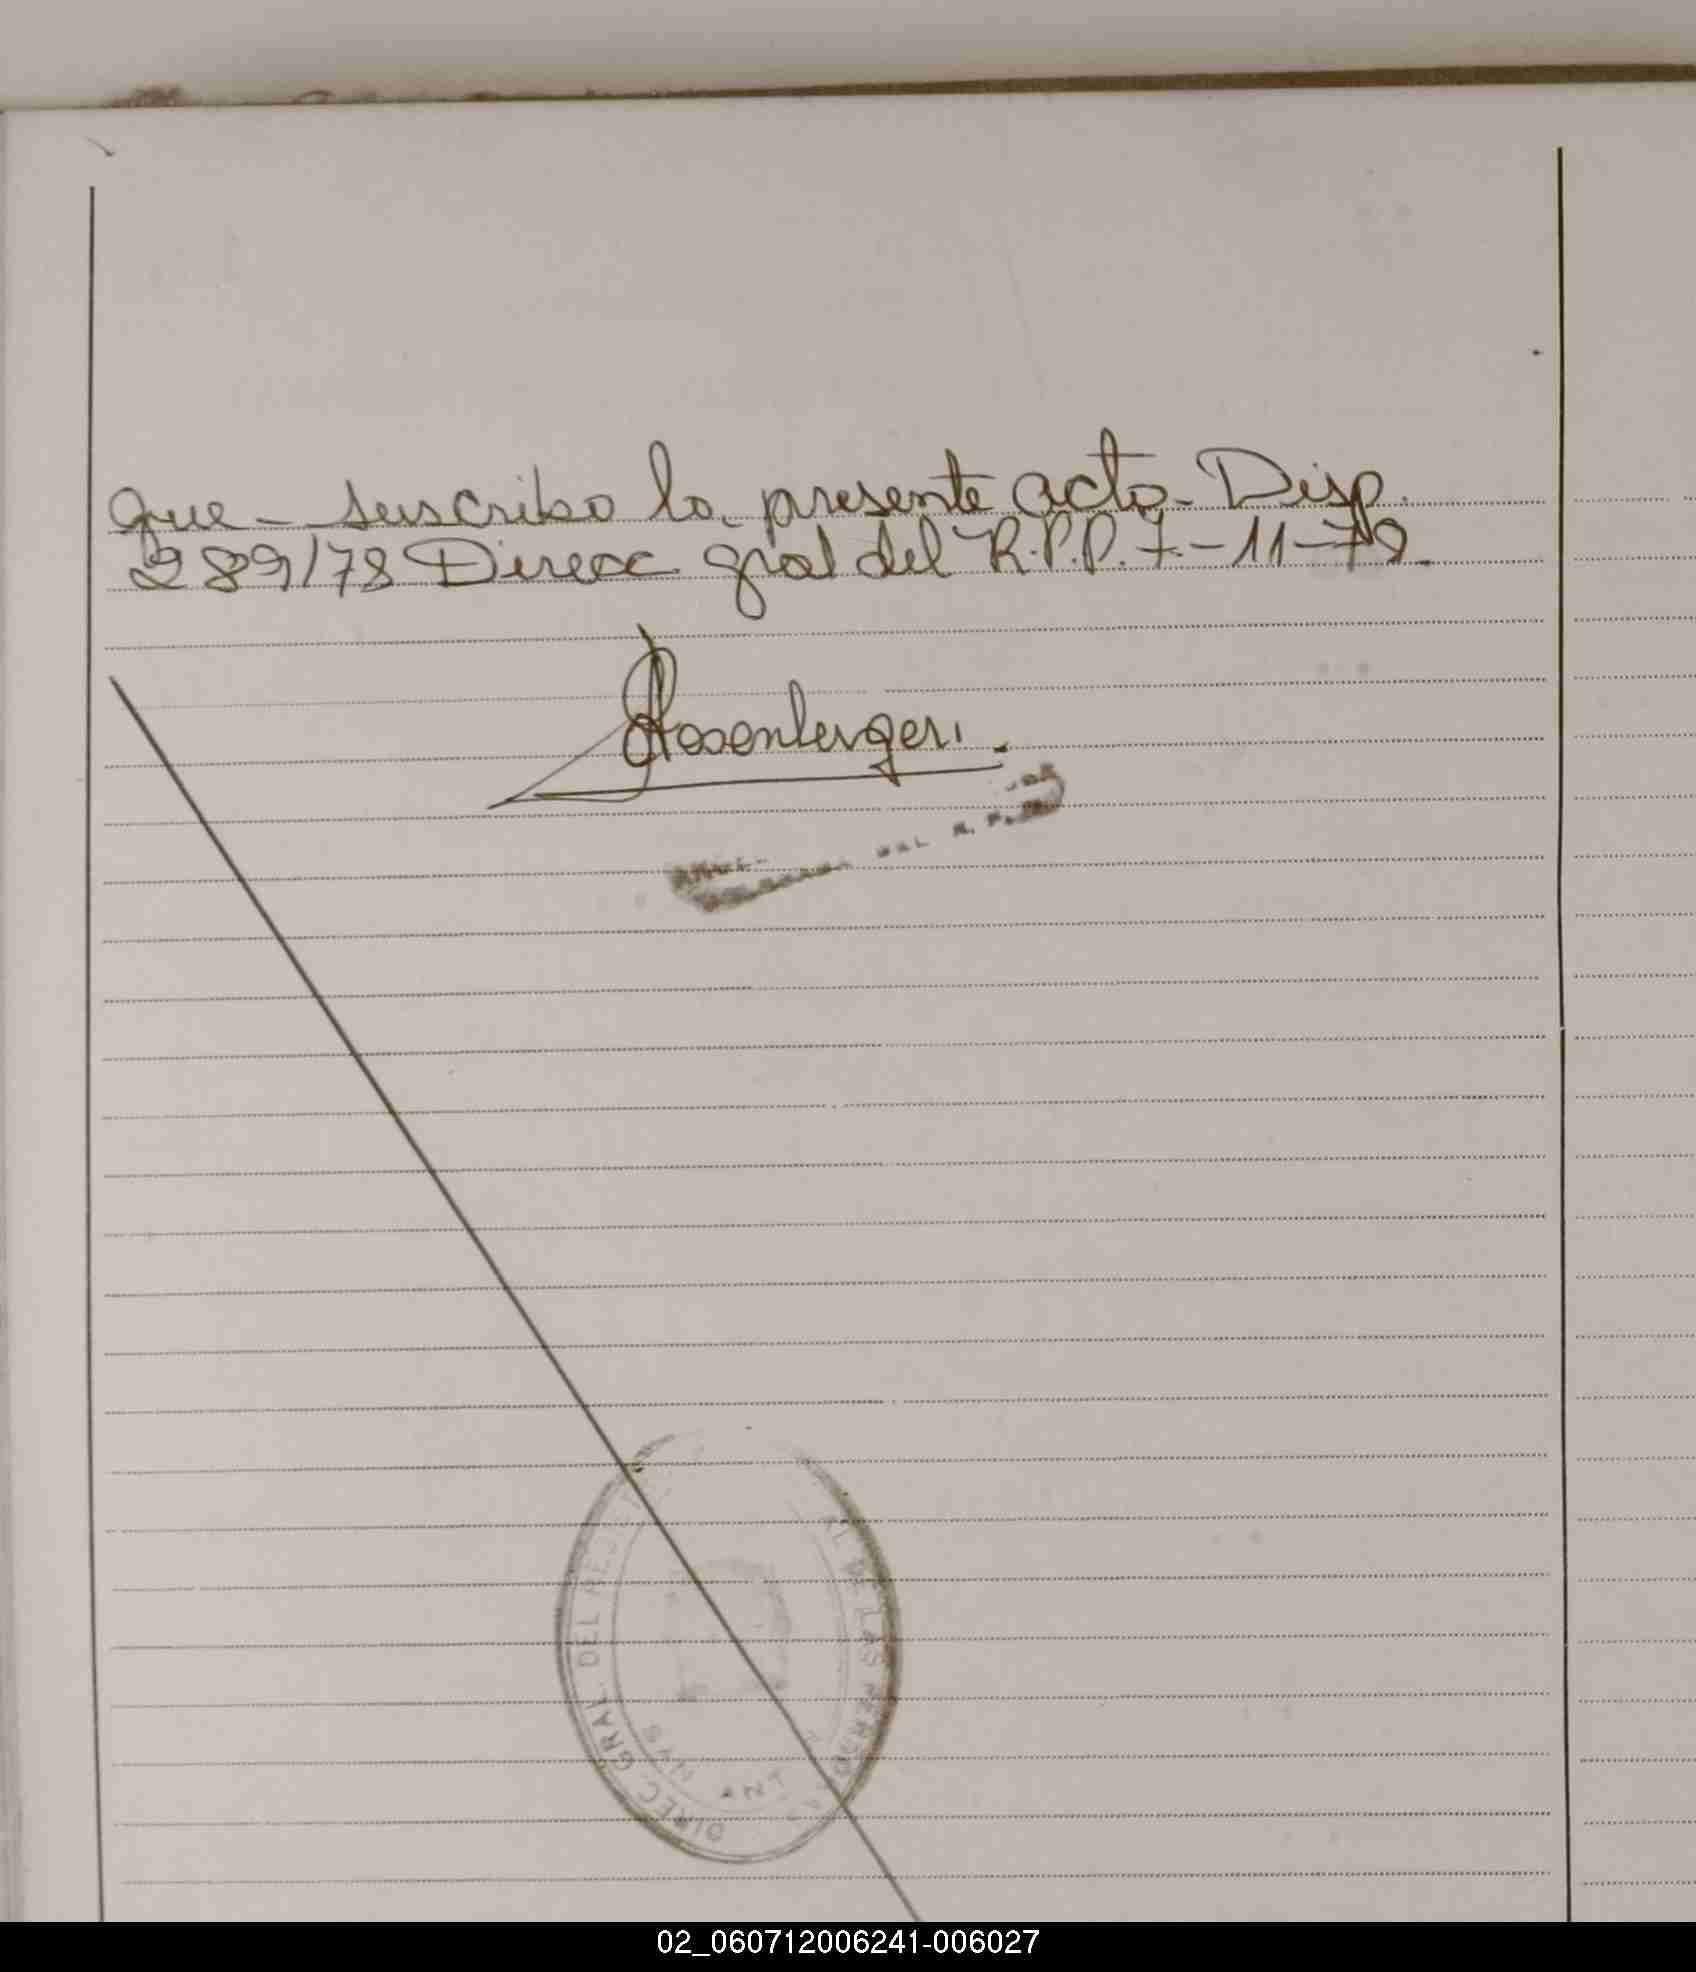 que - suscribo la presente acta - Disp.
289/78 Direcc. gral del R.P.P. 7-11-78.
Rosenberger.
DEL R. P.
DIREC. GRAL. DEL
DE LAS PERSO
SAN
02_060712006241-006027